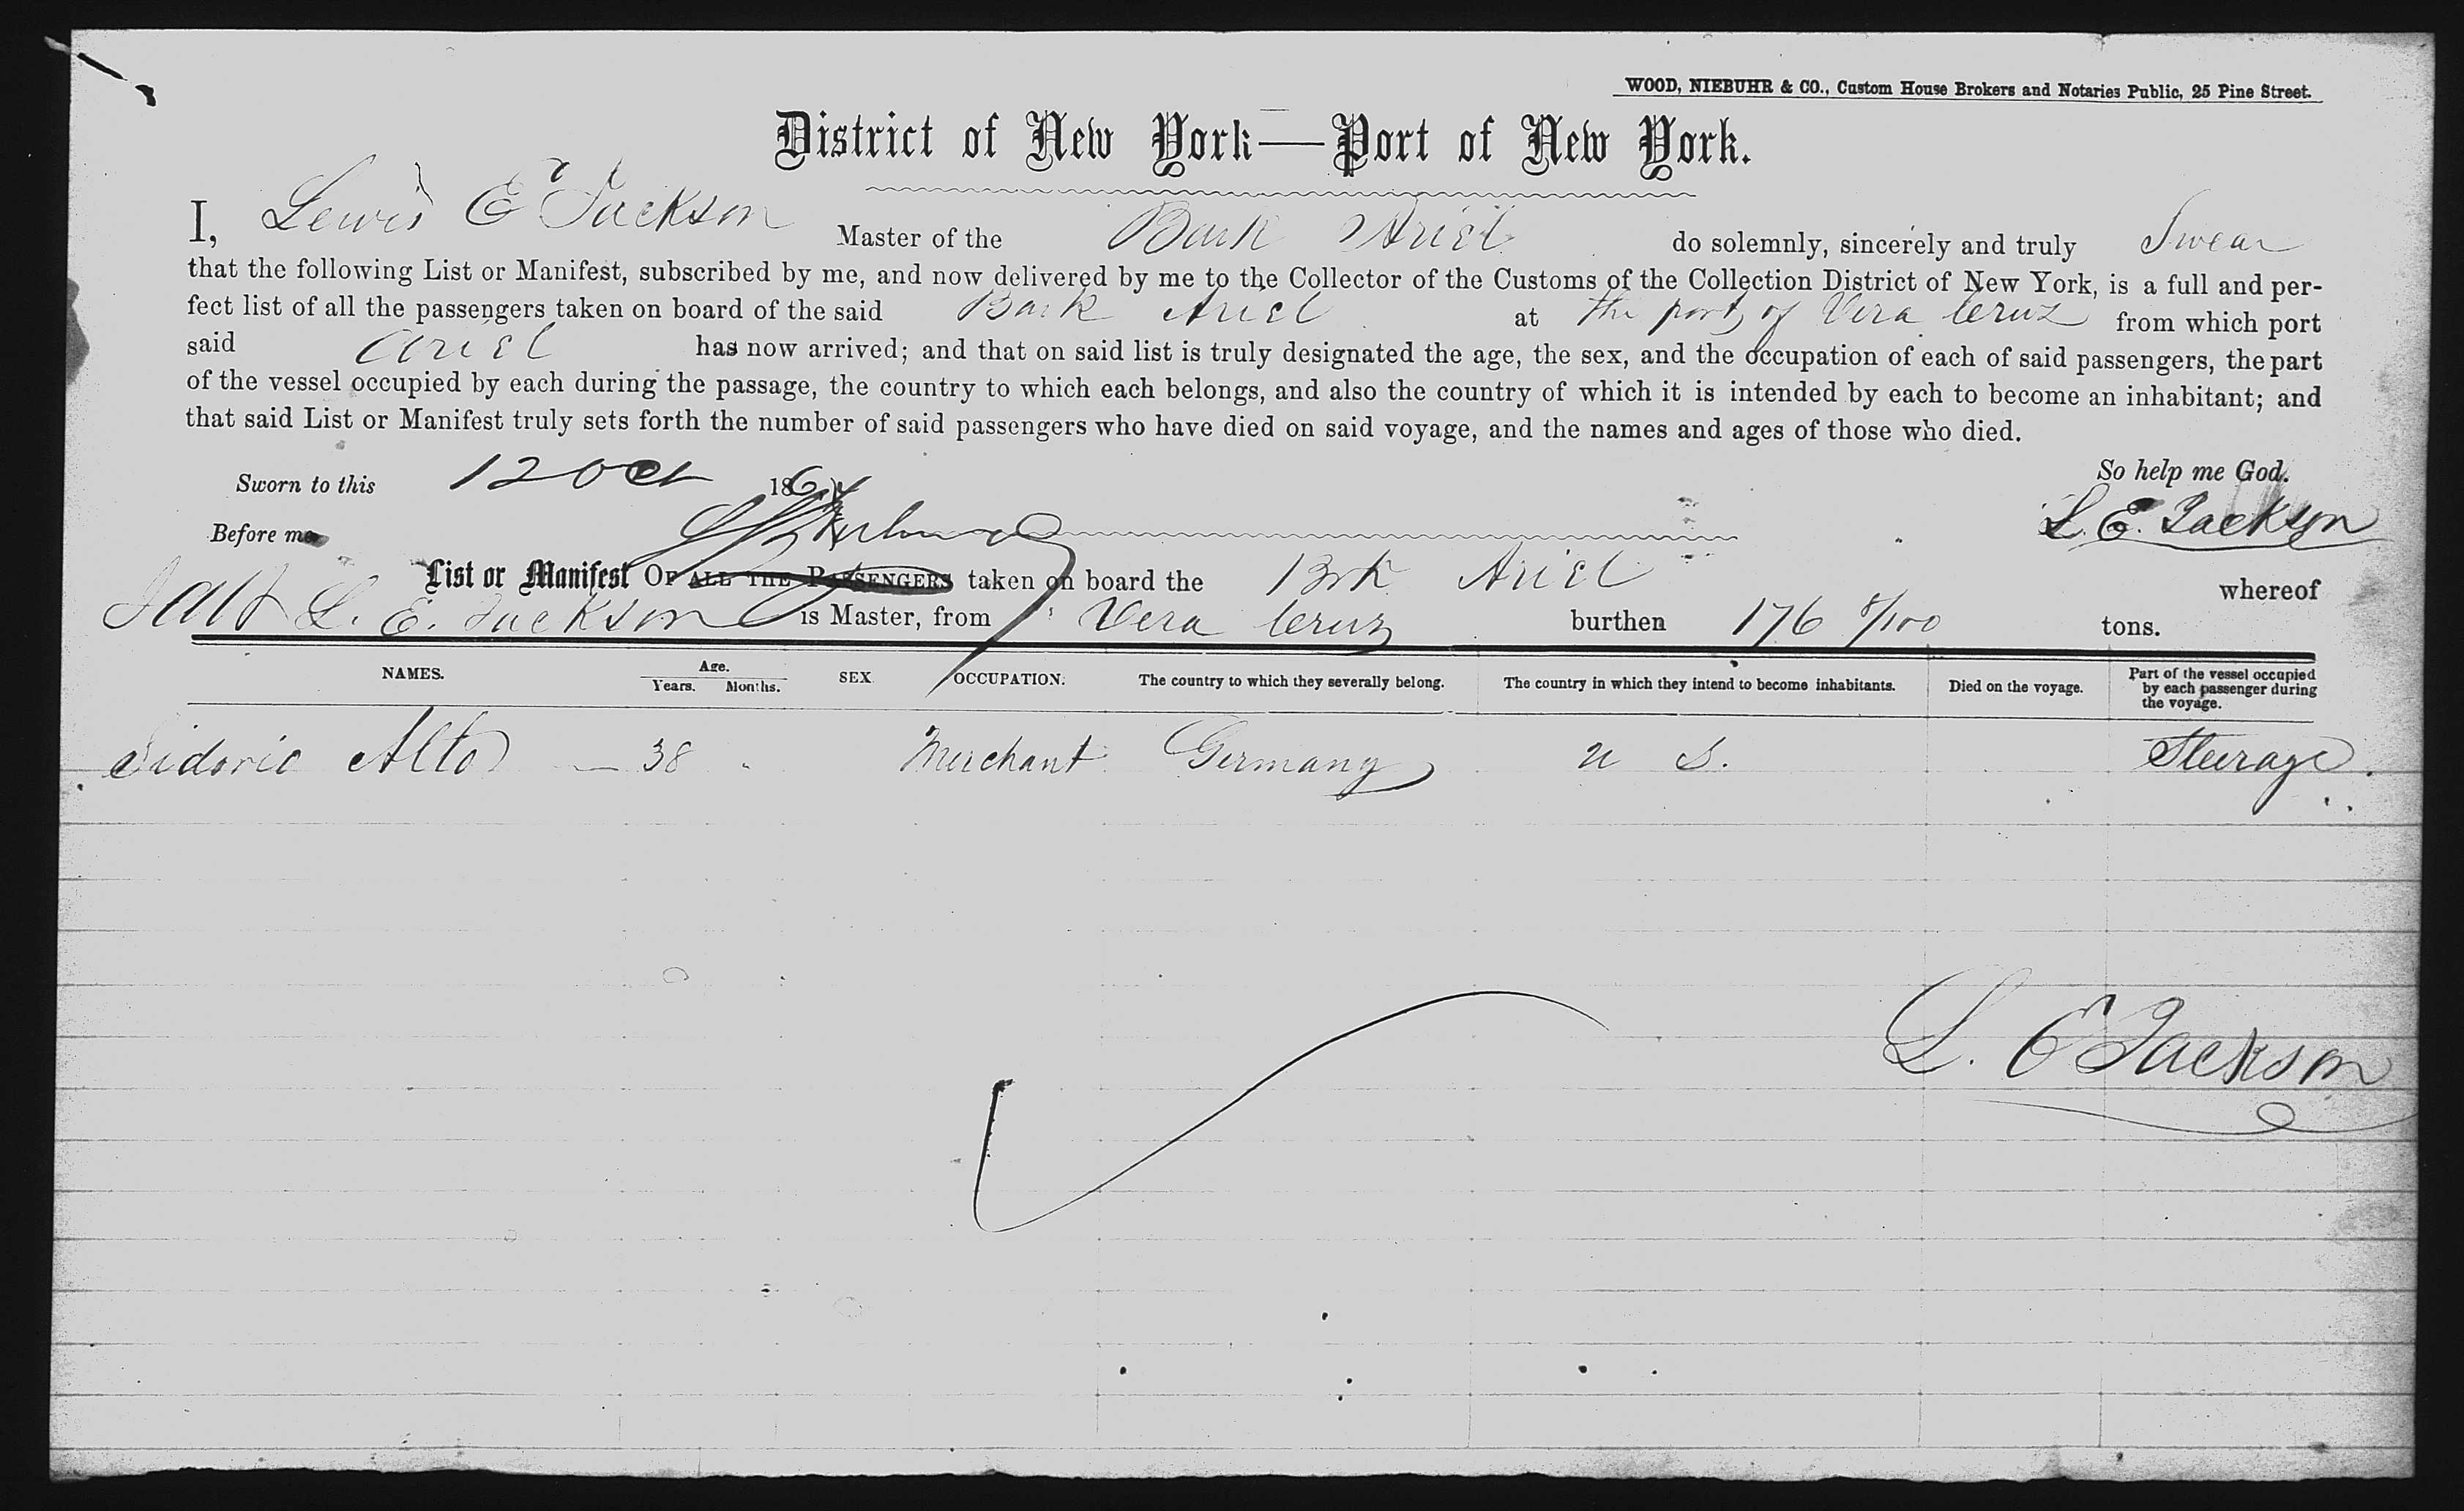 WOOD, NIEBUHR & CO., Custom House Brokers and Notaries Public, 25 Pine Street.
District of New York—Port of New York.
I, Lewis E Jackson Master of the Bark Ariel do solemnly, sincerely and truly Swear
that the following List or Manifest, subscribed by me, and now delivered by me to the Collector of the Customs of the Collection District of New York, is a full and per-
fect list of all the passengers taken on board of the said Bark Ariel at the port of Vera Cruz from which port
said Ariel has now arrived; and that on said list is truly designated the age, the sex, and the occupation of each of said passengers, the part
of the vessel occupied by each during the passage, the country to which each belongs, and also the country of which it is intended by each to become an inhabitant; and
that said List or Manifest truly sets forth the number of said passengers who have died on said voyage, and the names and ages of those who died.
Sworn to this 12 Oct 186 So help me God.
Before me L. E. Jackson
List or Manifest OF ALL THE PASSENGERS taken on board the Brk Ariel whereof
L. E. Jackson is Master, from Vera Cruz burthen 176 8/100 tons.
NAMES. Age. Years. Months. SEX. OCCUPATION. The country to which they severally belong. The country in which they intend to become inhabitants. Died on the voyage. Part of the vessel occupied by each passenger during the voyage.
Alto 38 Merchant Germany U S. Steerage.
L. E Jackson